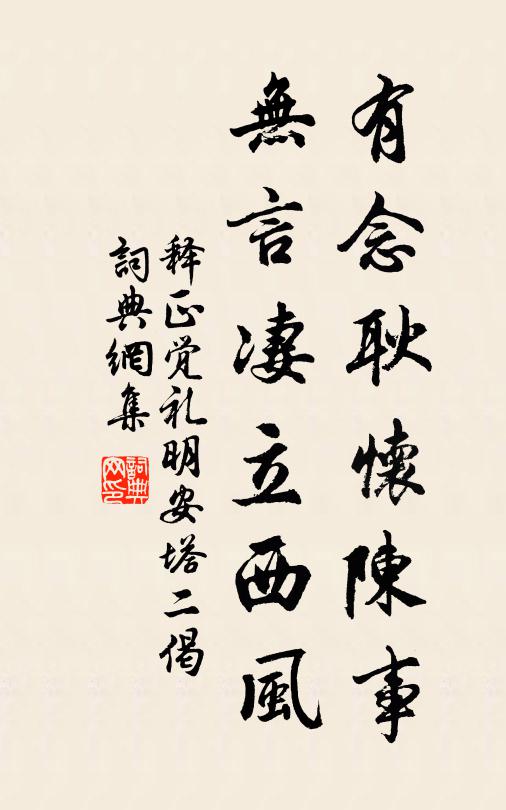 有念耿懷陳事
無言凄立西風
释正觉礼明安塔二偈
詞典網集
詞典
网印